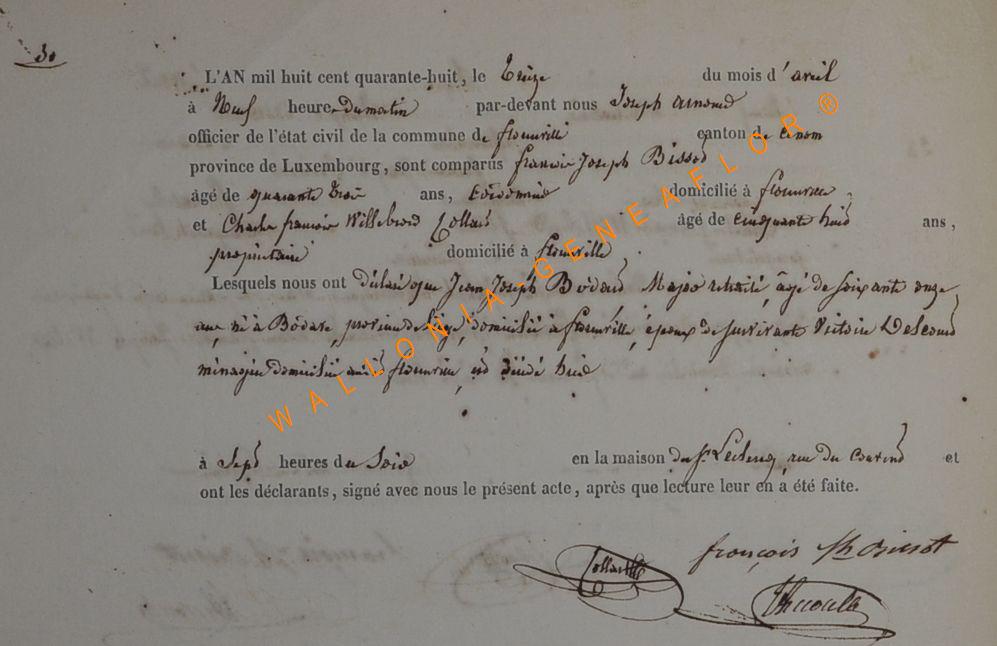 30
L'AN mil huit cent quarante-huit, le treize du mois d'avril
à Neuf heures du matin par-devant nous Joseph Arnould
officier de l'état civil de la commune de florenville canton de idem
province de Luxembourg, sont comparus françois Joseph Bissot
âgé de quarante trois ans, cordonnier domicilié à florenville,
et Charles françois Willebrord Collard âgé de cinquante huit ans,
propriétaire domicilié à florenville,
Lesquels nous ont déclaré que Jean Joseph Bodard Major retraité, âgé de soixante onze
ans, né à Bodart, province de Liège, domicilié à florenville, époux de survivante Victoire
ménagère domiciliée audit florenville, est décédé hier
à Sept heures du Soir en la maison du Sr Leclercq, rue du couvent et
ont les déclarants, signé avec nous le présent acte, après que lecture leur en a été faite.
françois Jh Bissot
Collard
WALLONIA-GENEAFLOR ®